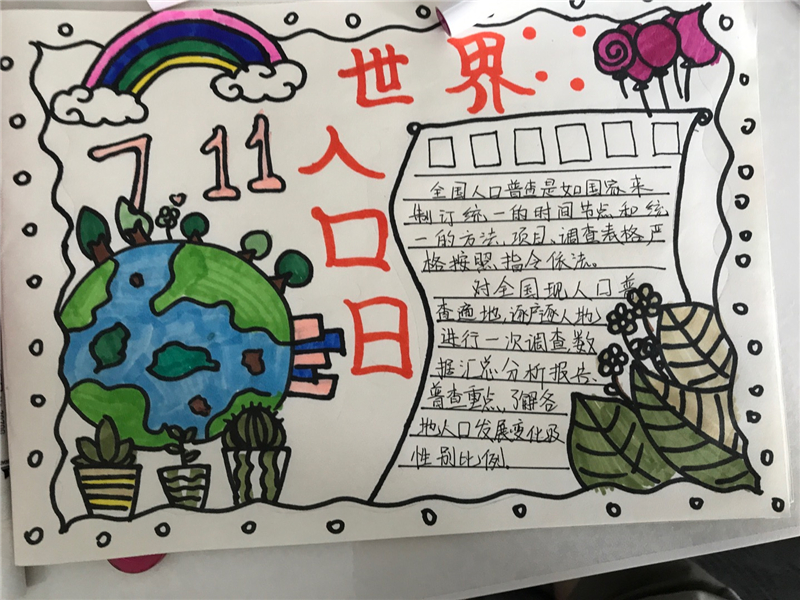 世界
人口日
7 11
全国人口普查是如国家来
制订统一的时间节点和统
一的方法、项目、调查表格严
格按照指令依法。
对全国现人口普
查遍地,逐户逐人地
进行一次调查数
据汇总分析报告、
普查重点、了解各
地人口发展变化及
性别比例.